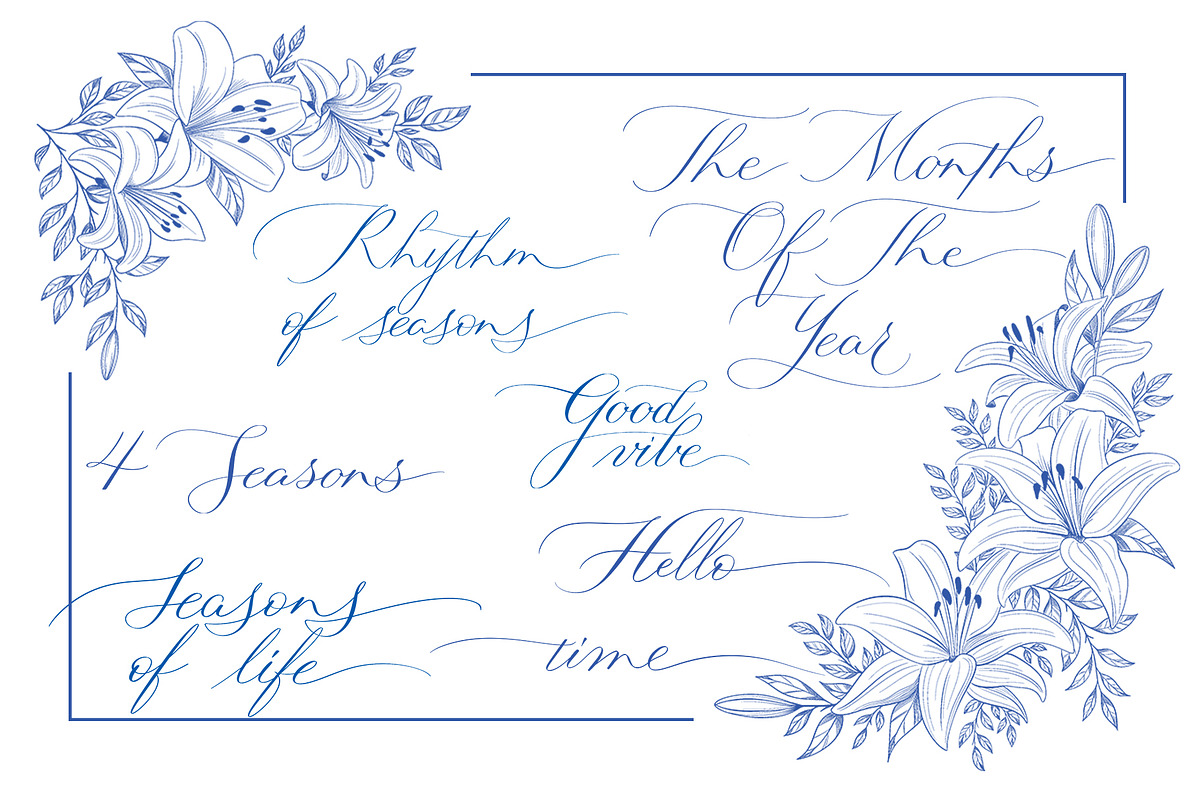 The Months
Of The
Year
Rhythm
of seasons
Good
vibe
4 Seasons
Hello
Seasons
of life
time